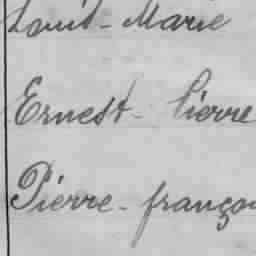 Louis-Marie
Ernest-Pierre
Pierre-franço